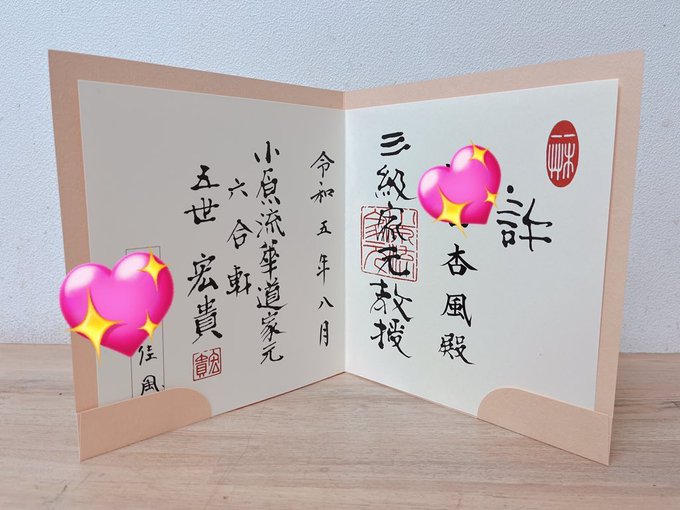 許
杏風殿
三級家元教授
令和五年八月
小原流華道家元
六合軒
五世 宏貴
宏貴
佳風